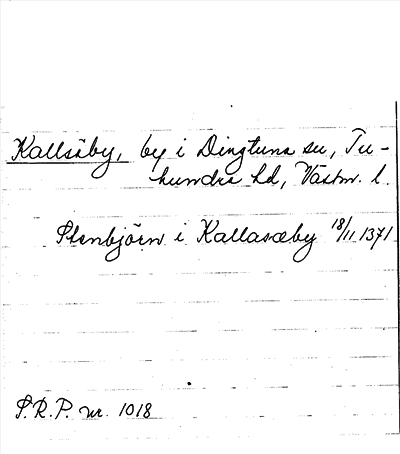 Kallsäby, by i Dingtuna sn, Tu-
hundra hd, Västm. l.
Stenbjörn i Kallasæby 18/11 1371
S.R.P. nr. 1018